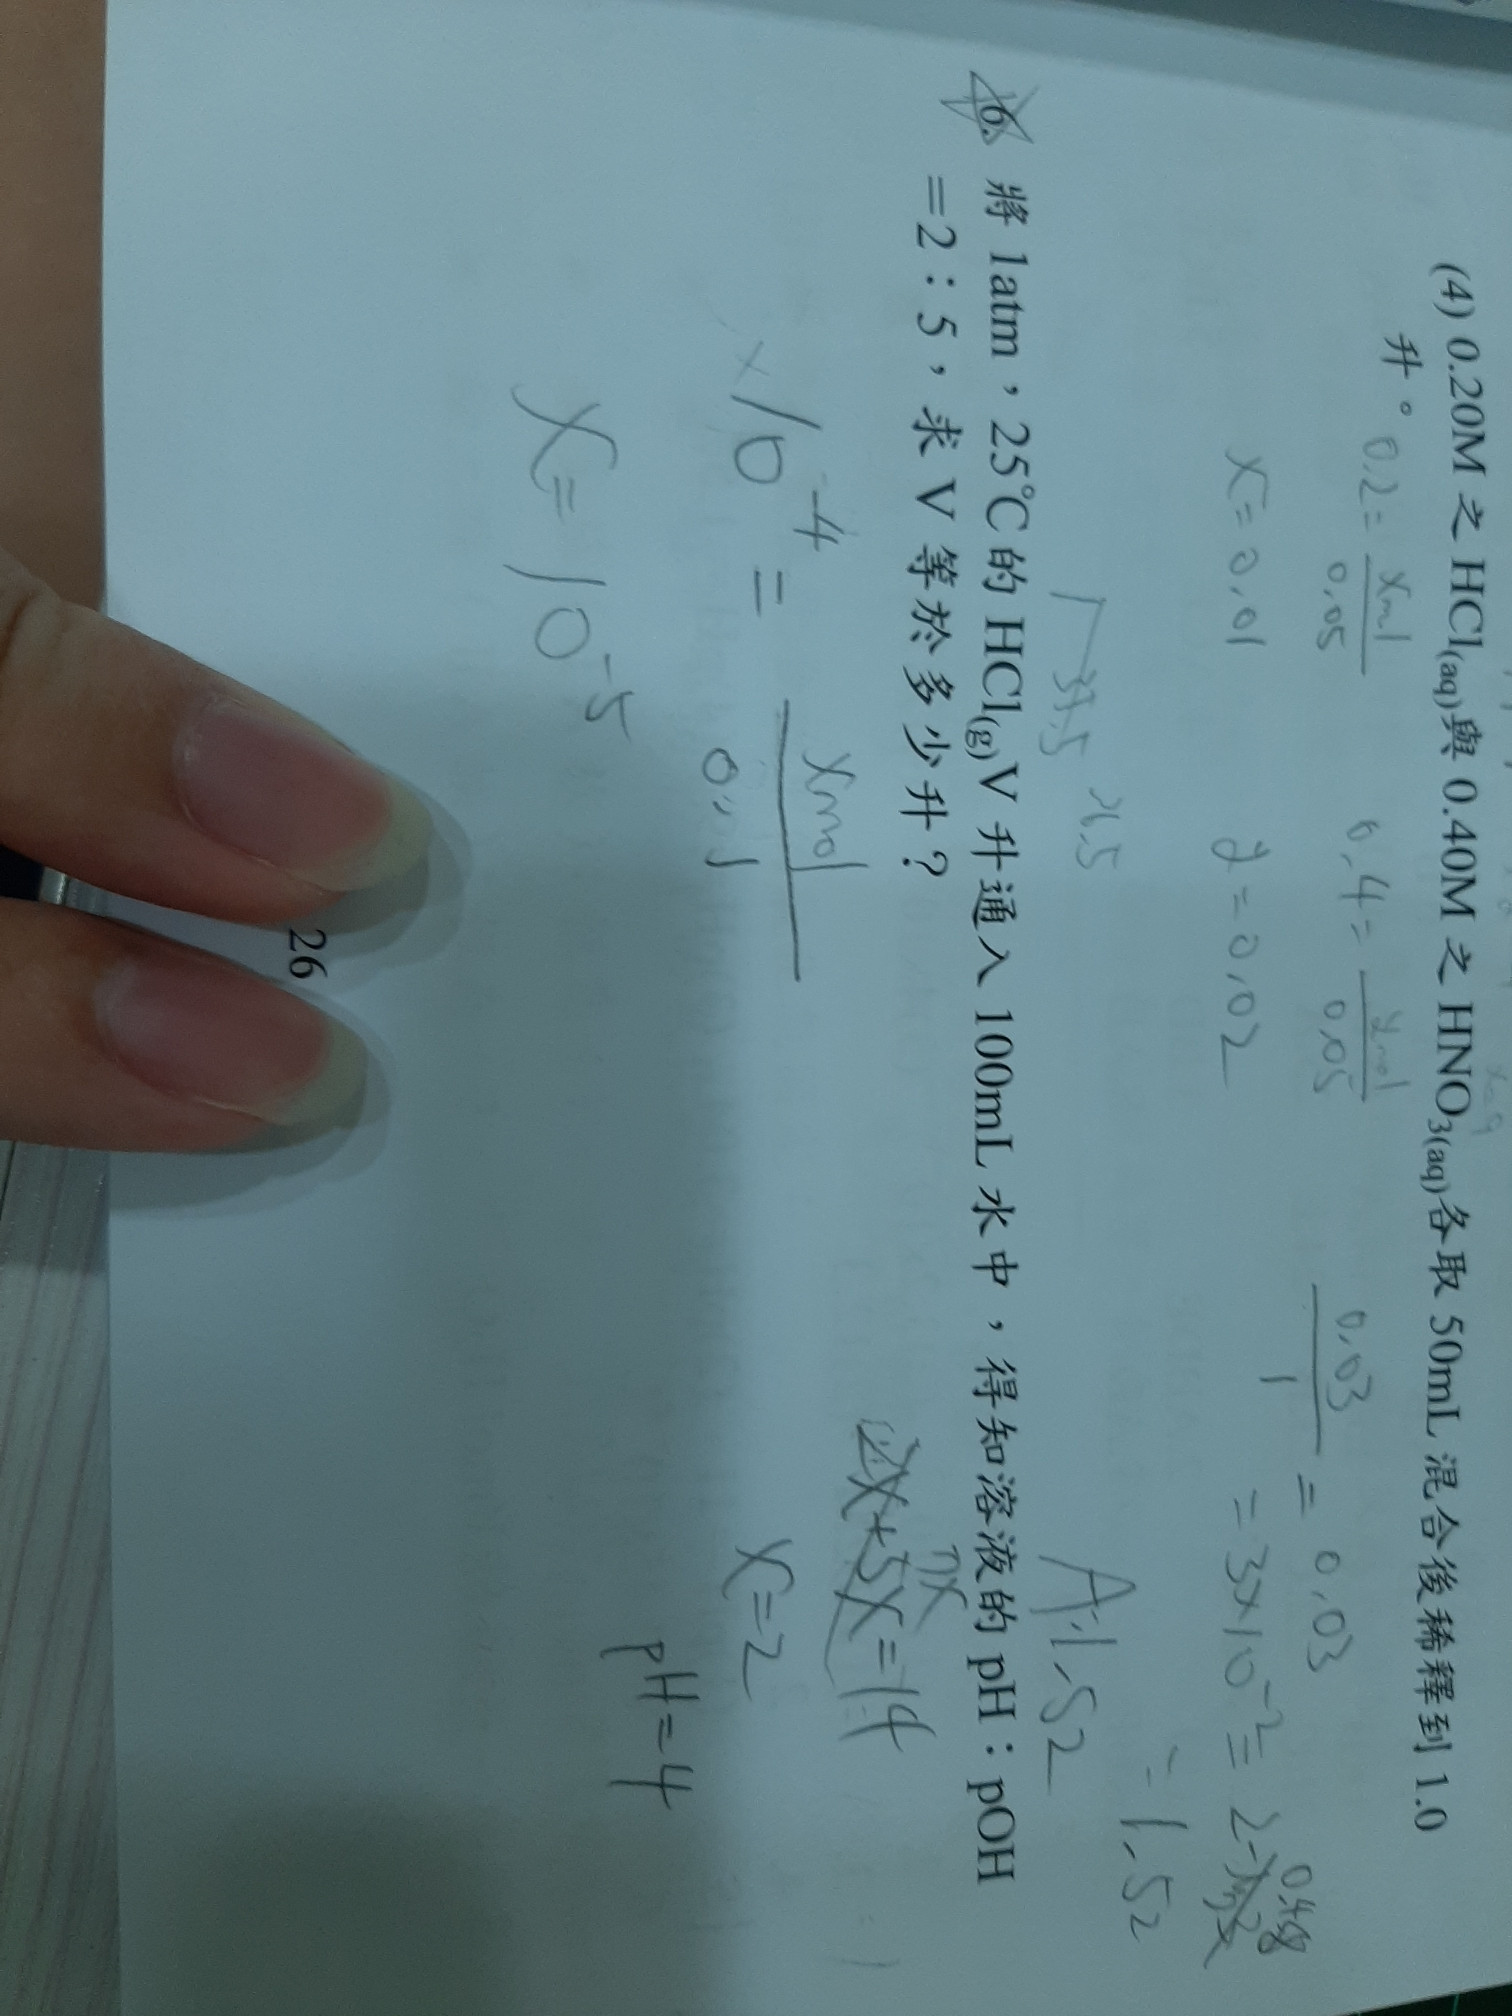 (4) 0.20M 之 HCl(aq)與 0.40M 之 HNO3(aq)各取 50mL 混合後稀釋到 1.0
升。
0.2= xmol/0.05
0.4= ymol/0.05
0.03/1 = 0.03
x=0.01
y=0.02
=3×10⁻²=2-0.48
=1.52
A:1.52
6. 將 1atm,25℃的 HCl(g)V 升通入 100mL 水中,得知溶液的 pH:pOH
=2:5,求 V 等於多少升?
2x+5x=14
7x
x=2
pH=4
10⁻⁴ = xmol/0.1
x=10⁻⁵
26